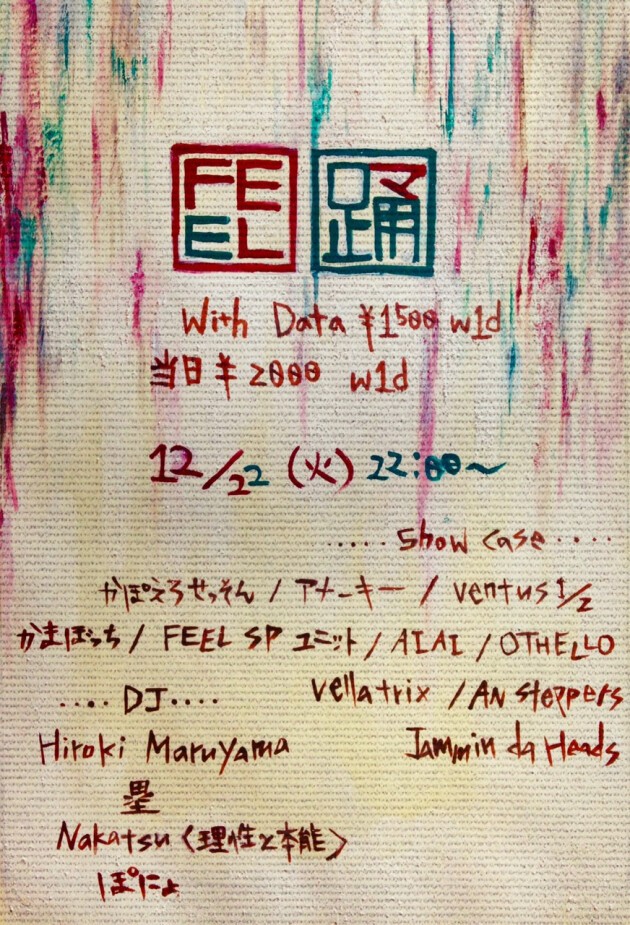 FEEL 踊
With Data ¥1500 w1d
当日 ¥2000 w1d
12/22 (火) 22:00〜
..... Show case .....
かぽえろせっそん / アナーキー / ventus 1/2
かまぼっち / FEEL SP ユニット / AIAI / OTHELLO
vellatrix / AN steppers
Jammin da Heads
.... DJ ....
Hiroki Maruyama
塁
Nakatsu〈理性と本能〉
ぽにょ